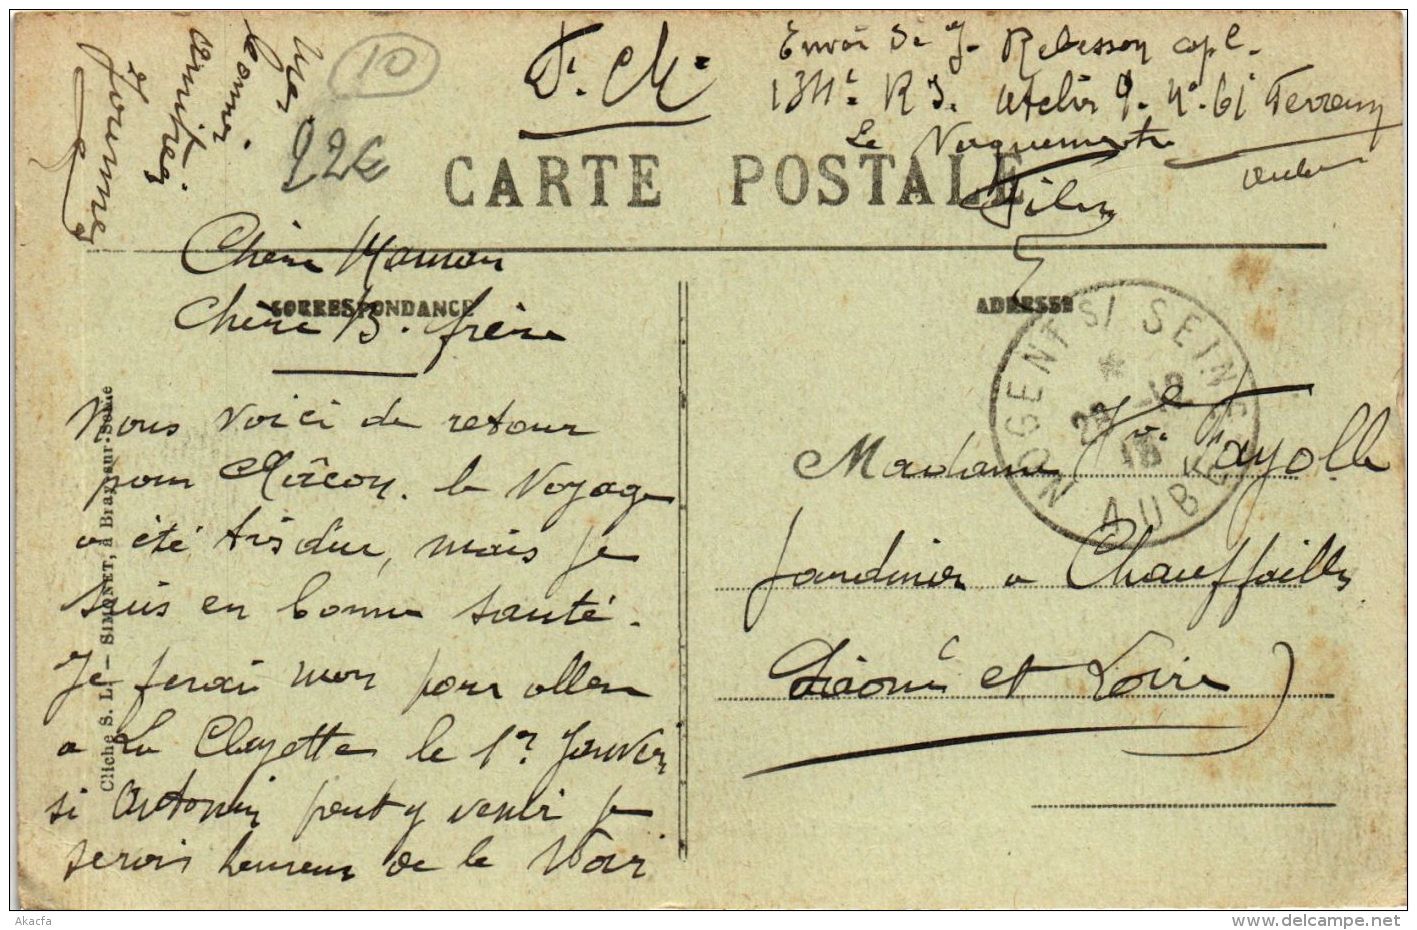 10
22€
F. M.
Envoi de J. Rebesson capl.
134e R I. Atelier
Le Vaguemestre
Mes
bonnes
amitiés
Journet
CARTE POSTALE
CORRESPONDANCE
ADRESSE
Chère Maman
Chère B. frère
Nous voici de retour
pour Mâcon. le Voyage
a été très dur, mais je
suis en bonne santé.
Je ferai mon pour aller
a La Clayette le 1er Janvier
si Antonin peut y venir je
serais heureux de le Voir
NOGENT S/ SEINE
AUBE
Madame Ve Fayolle
Jardinier a Chauffailles
Saône et Loire
Cliché S. L. — SIMONET, à Bray-sur-Seine
Akacfa
www.delcampe.net